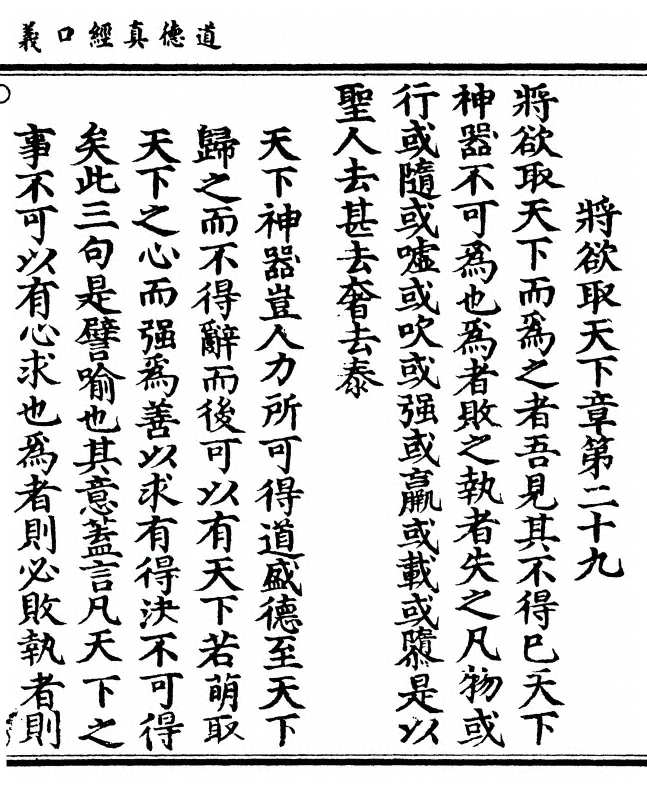 道德真經口義
將欲取天下章第二十九
將欲取天下而爲之者吾見其不得已天下
神器不可爲也爲者敗之執者失之凡物或
行或隨或噓或吹或强或羸或載或隳是以
聖人去甚去奢去泰
天下神器豈人力所可得道盛德至天下
歸之而不得辭而後可以有天下若萌取
天下之心而强爲善以求有得决不可得
矣此三句是譬喻也其意蓋言凡天下之
事不可以有心求也爲者則必敗執者則